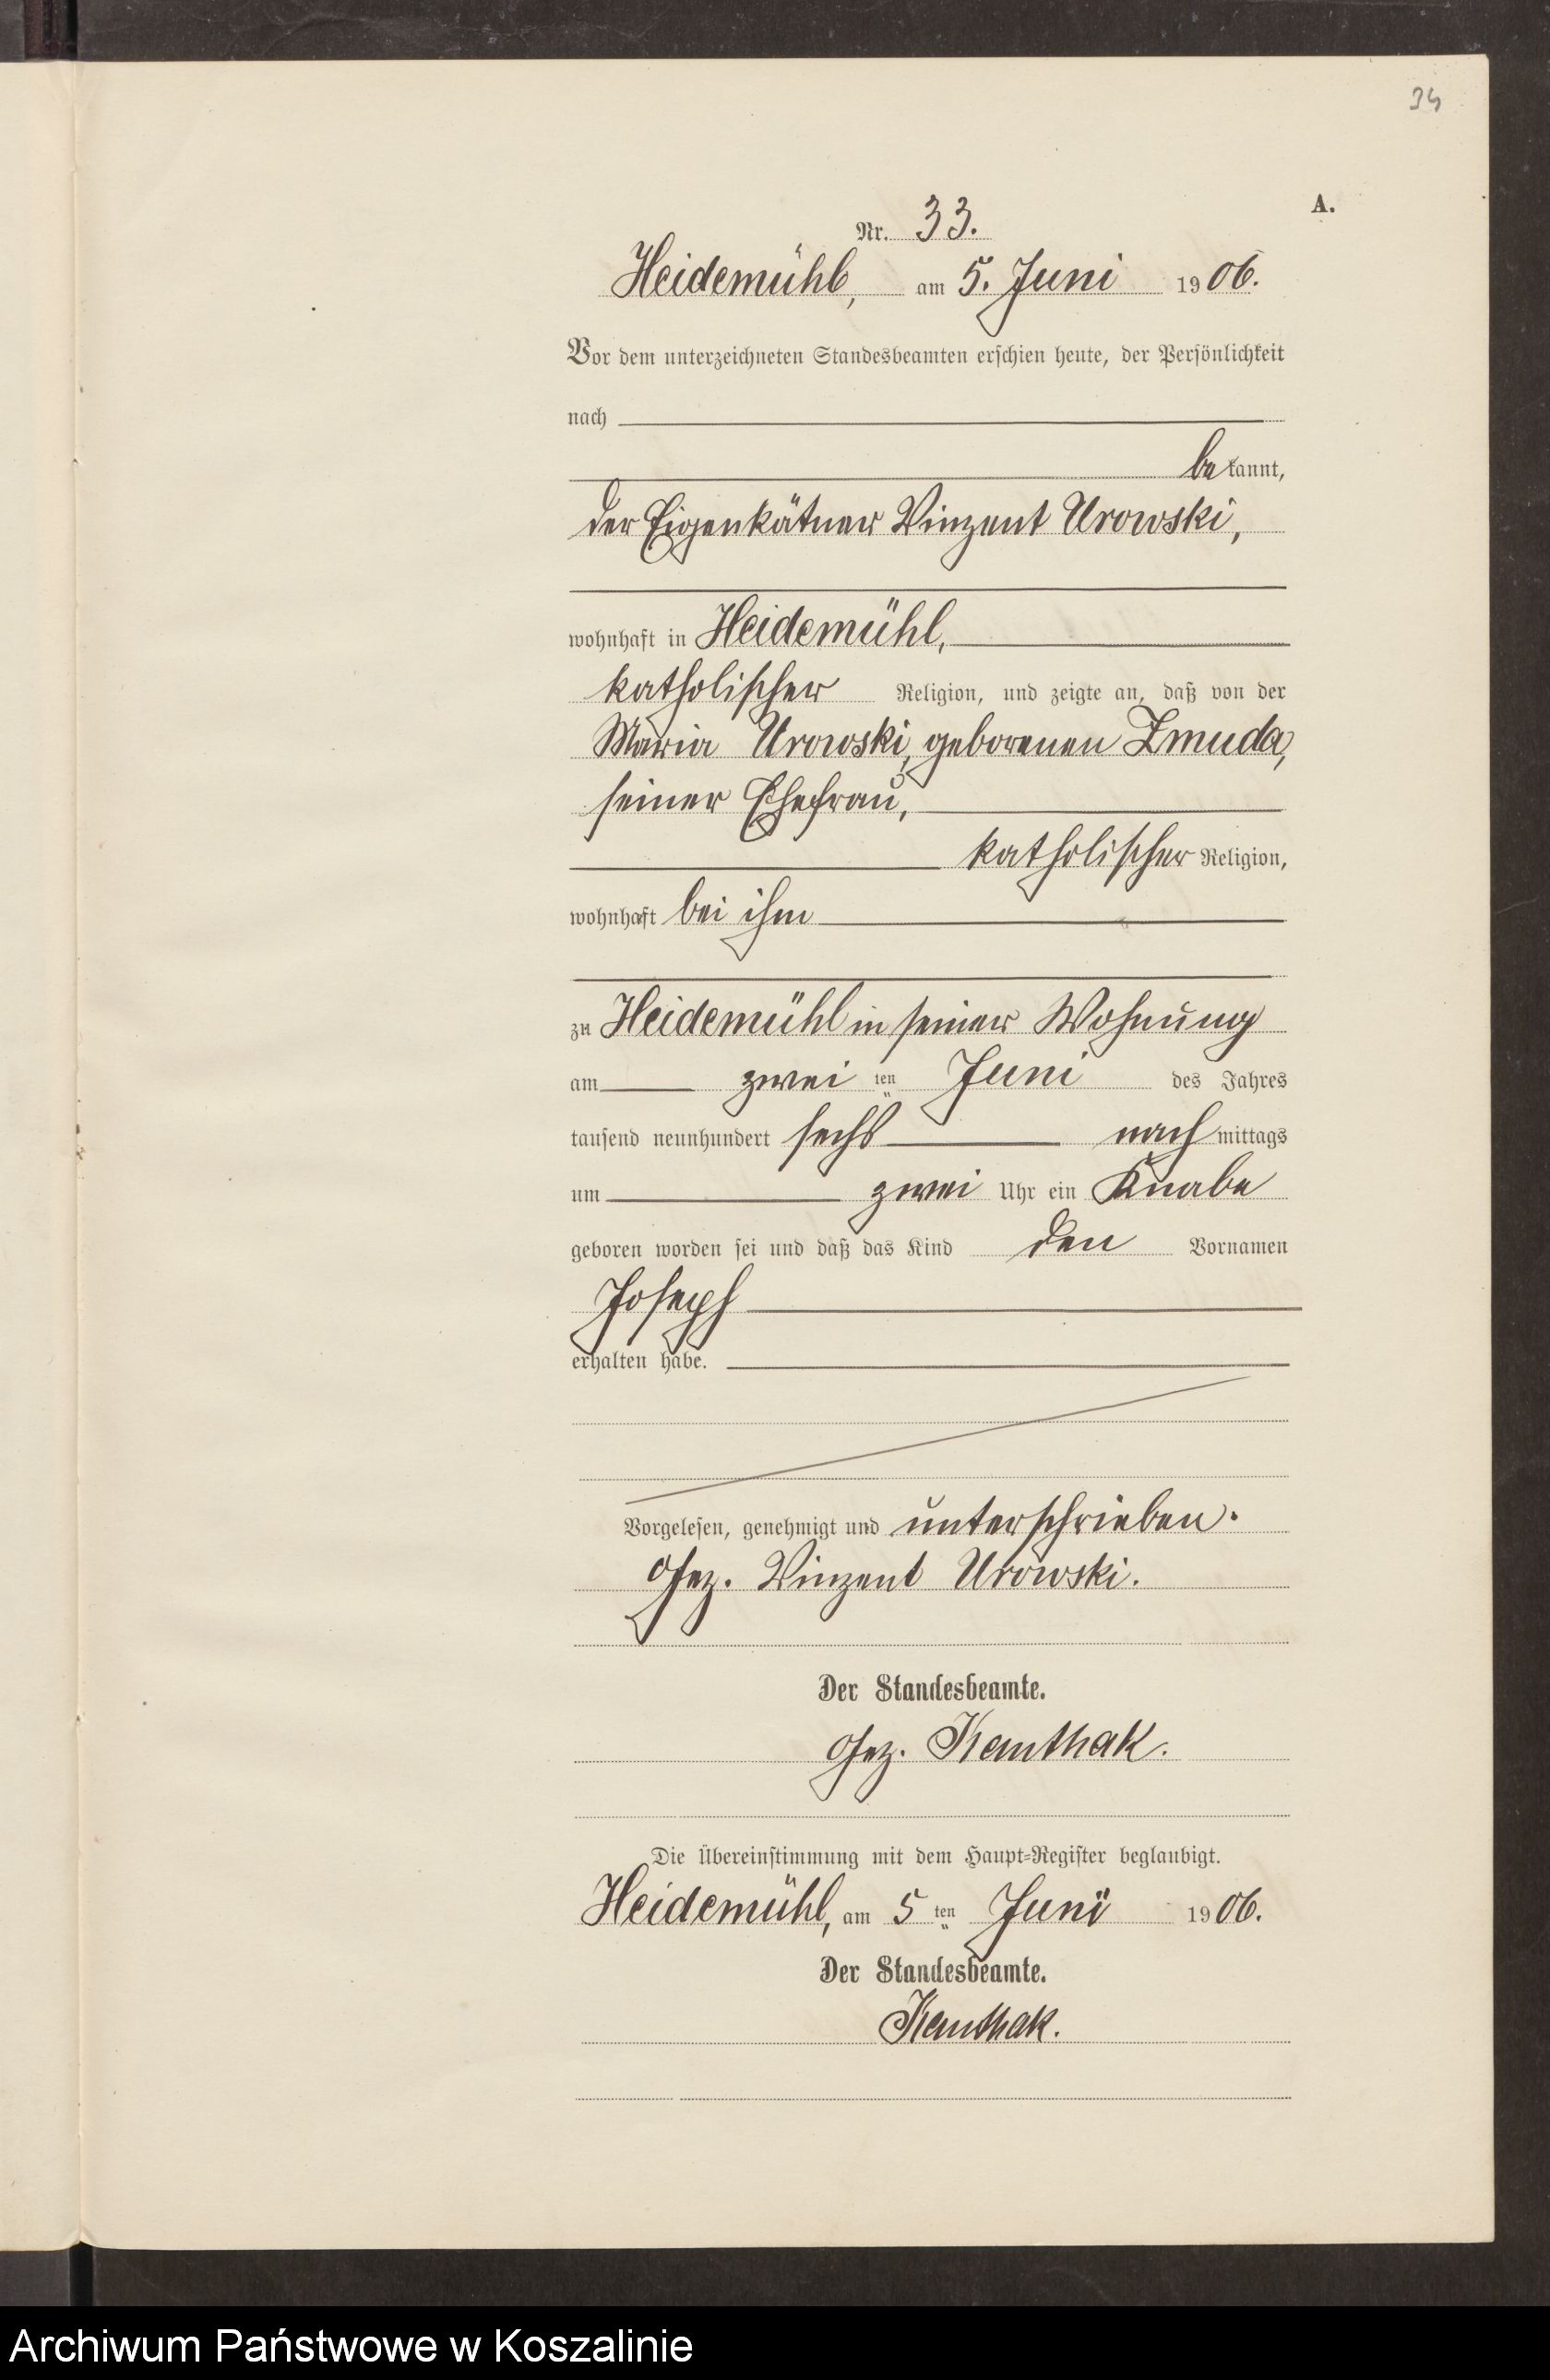 34
A.
Nr. 33.
Heidemühl, am 5. Juni 1906.
Vor dem unterzeichneten Standesbeamten erschien heute, der Persönlichkeit
nach
bekannt,
der Eigenkätner Vinzent Urowski,
wohnhaft in Heidemühl,
katholischer Religion, und zeigte an, daß von der
Maria Urowski, geborenen Zmuda,
seiner Ehefrau,
katholischer Religion,
wohnhaft bei ihm
zu Heidemühl in seiner Wohnung
am zwei ten Juni des Jahres
tausend neunhundert sechs nachmittags
um zwei Uhr ein Knabe
geboren worden sei und daß das Kind den Vornamen
Joseph
erhalten habe.
Vorgelesen, genehmigt und unterschrieben.
Gez. Vinzent Urowski.
Der Standesbeamte.
Gez. Kemthak.
Die Übereinstimmung mit dem Haupt=Register beglaubigt.
Heidemühl, am 5 ten Juni 1906.
Der Standesbeamte.
Kemthak.
Archiwum Państwowe w Koszalinie